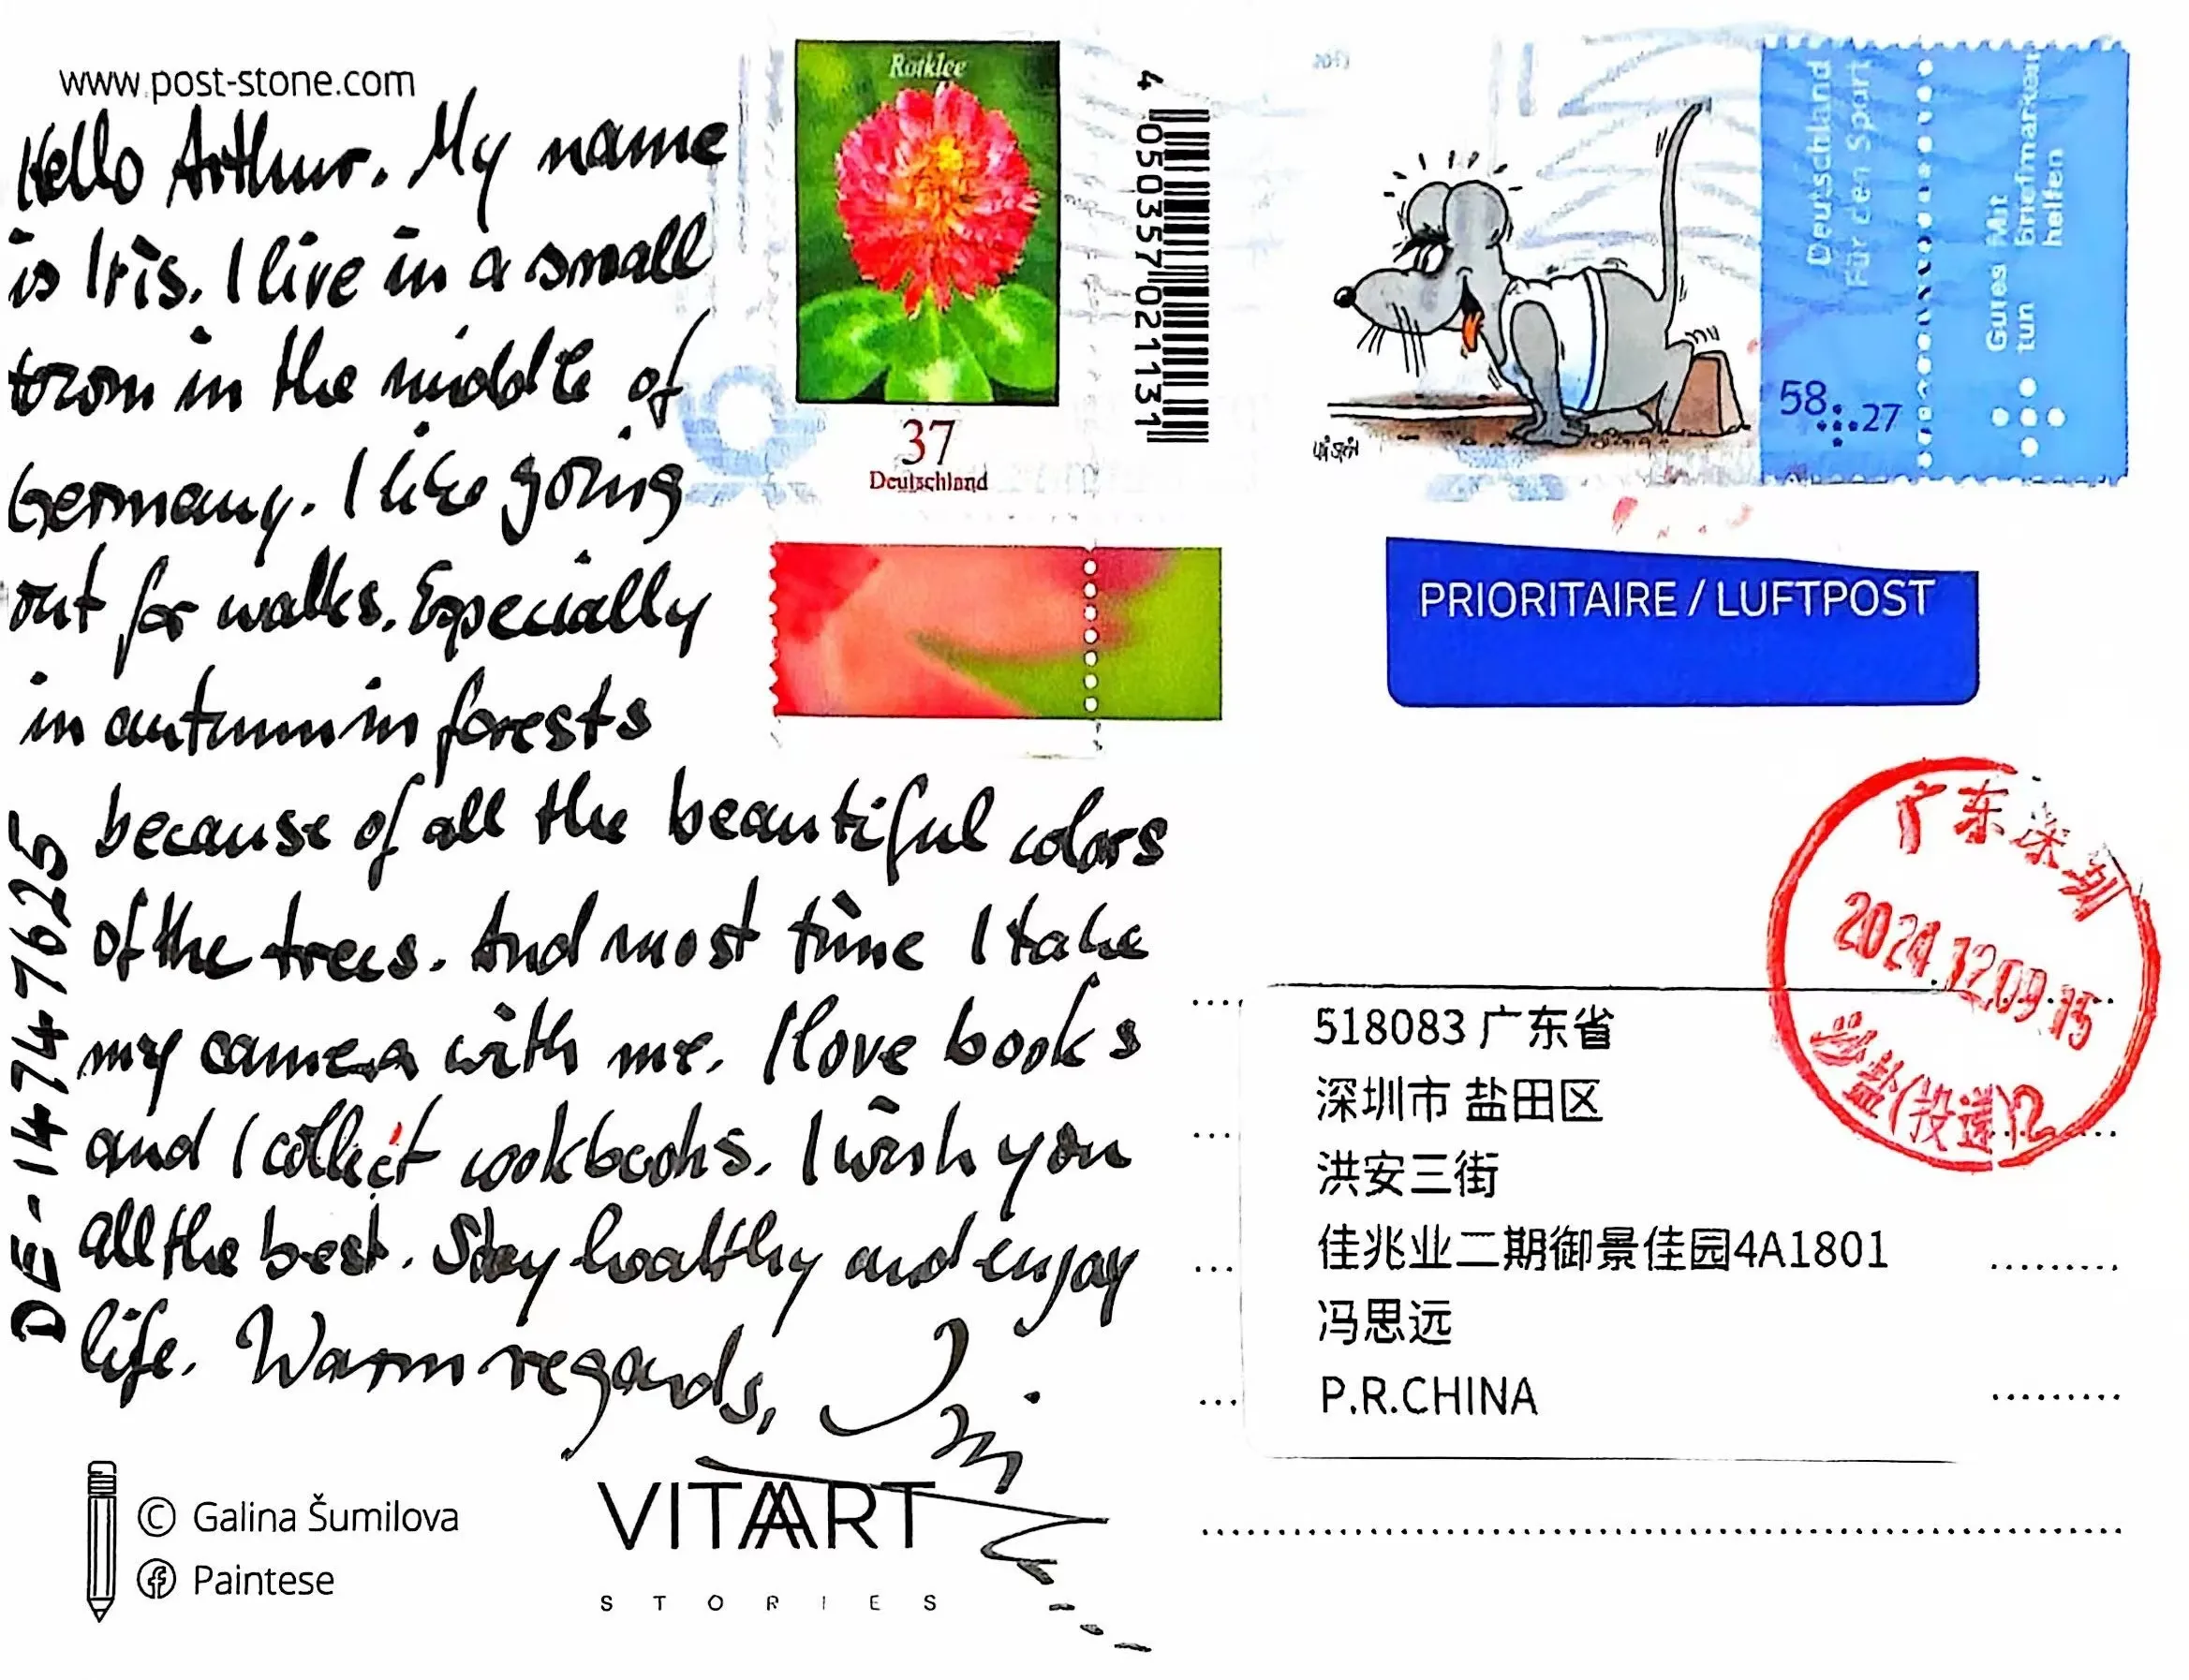 www.post-stone.com
Hello Arthur. My name
is Iris. I live in a small
town in the middle of
Germany. I like going
out for walks. Especially
in autumn in forests
because of all the beautiful colors
of the trees. And most time I take
my camera with me. I love books
and I collect cookbooks. I wish you
all the best. Stay healthy and enjoy
life. Warm regards,
Iris
DE-14747625
© Galina Šumilova
Paintese
VITAART
STORIES
Rotklee
37
Deutschland
4 050357 021131
Deutschland
Für den Sport
58...27
Gutes Mit
tun Briefmarken
helfen
PRIORITAIRE / LUFTPOST
广东深圳
2024.12.09.15
盐(投递)12
518083 广东省
深圳市 盐田区
洪安三街
佳兆业二期御景佳园4A1801
冯思远
P.R.CHINA